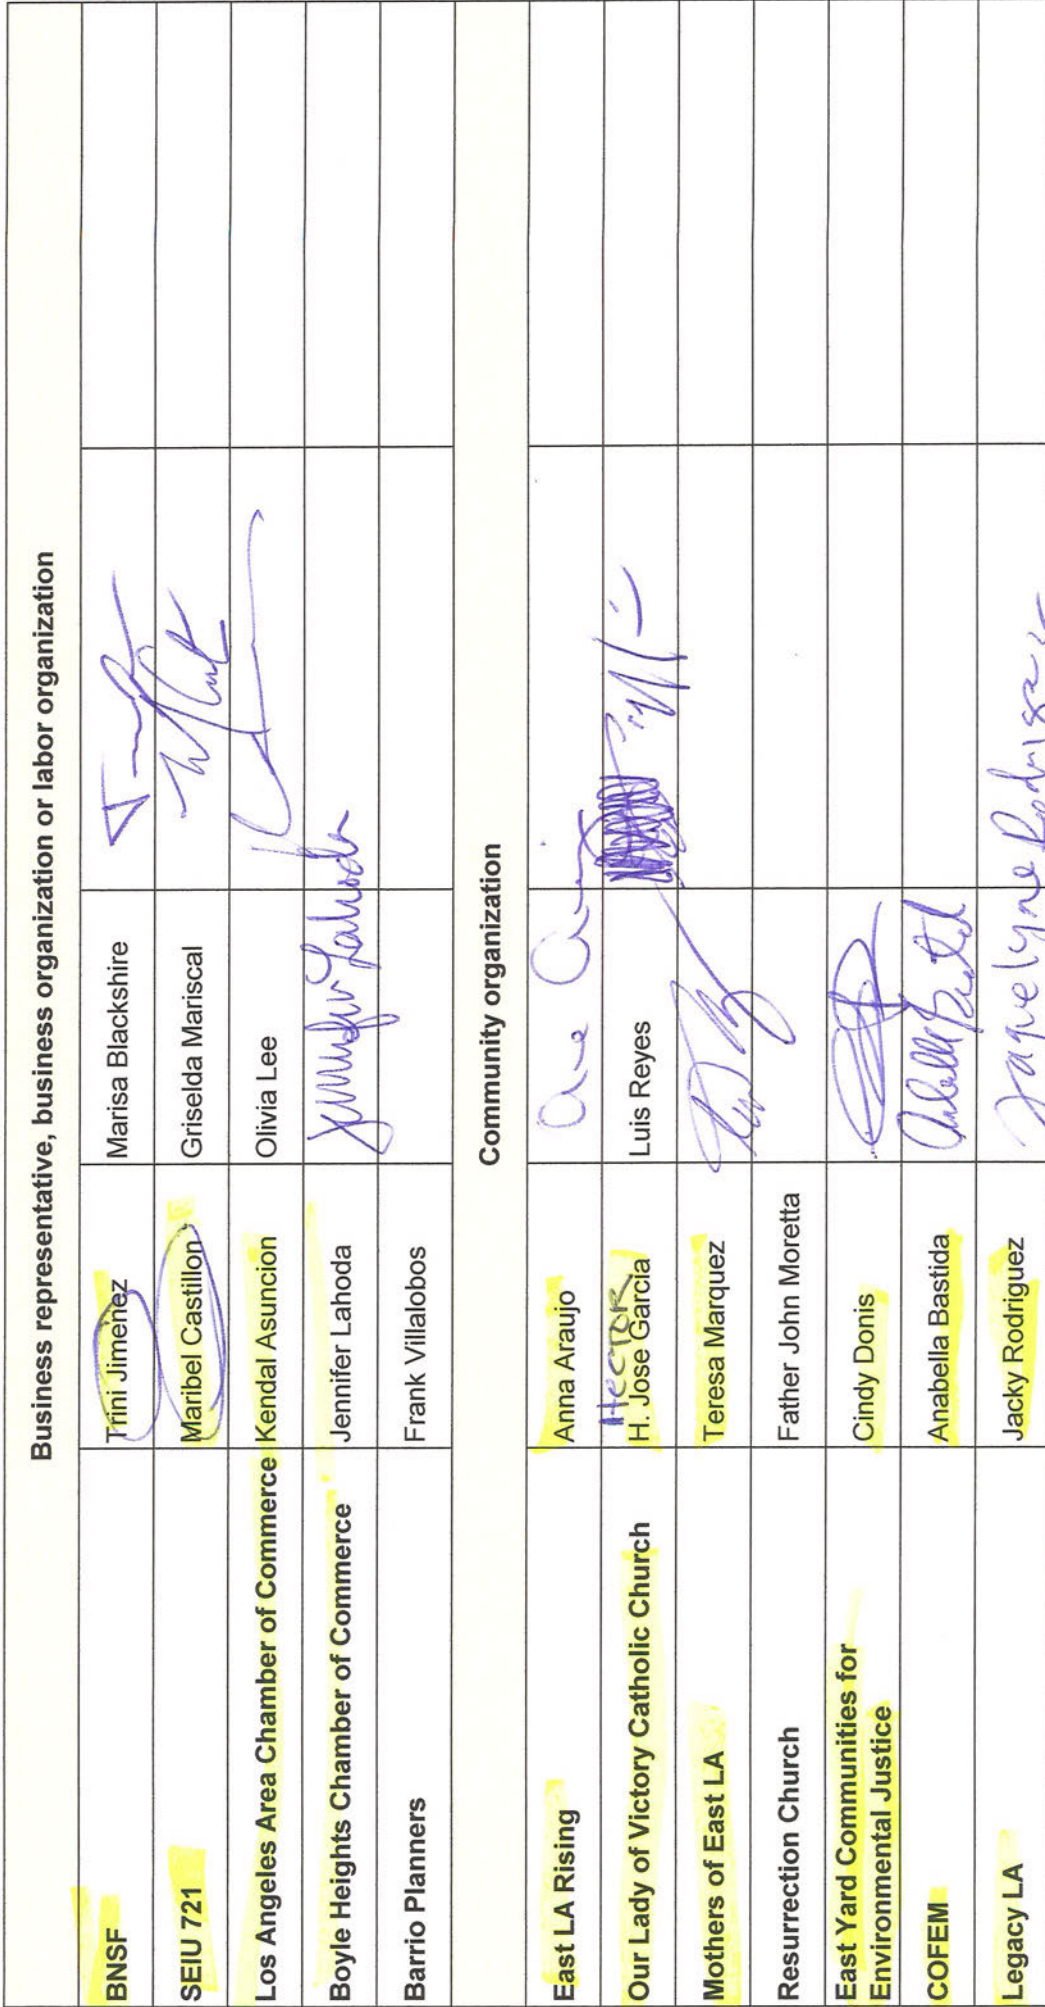 Business representative, business organization or labor organization
BNSF Trini Jimenez Marisa Blackshire
SEIU 721 Maribel Castillon Griselda Mariscal
Los Angeles Area Chamber of Commerce Kendal Asuncion Olivia Lee
Boyle Heights Chamber of Commerce Jennifer Lahoda Jennifer Lahoda
Barrio Planners Frank Villalobos
Community organization
East LA Rising Anna Araujo
HECTOR
Our Lady of Victory Catholic Church H. Jose Garcia Luis Reyes
Mothers of East LA Teresa Marquez
Resurrection Church Father John Moretta
East Yard Communities for
Environmental Justice Cindy Donis
COFEM Anabella Bastida
Legacy LA Jacky Rodriguez Jaquelyne Rodriguez